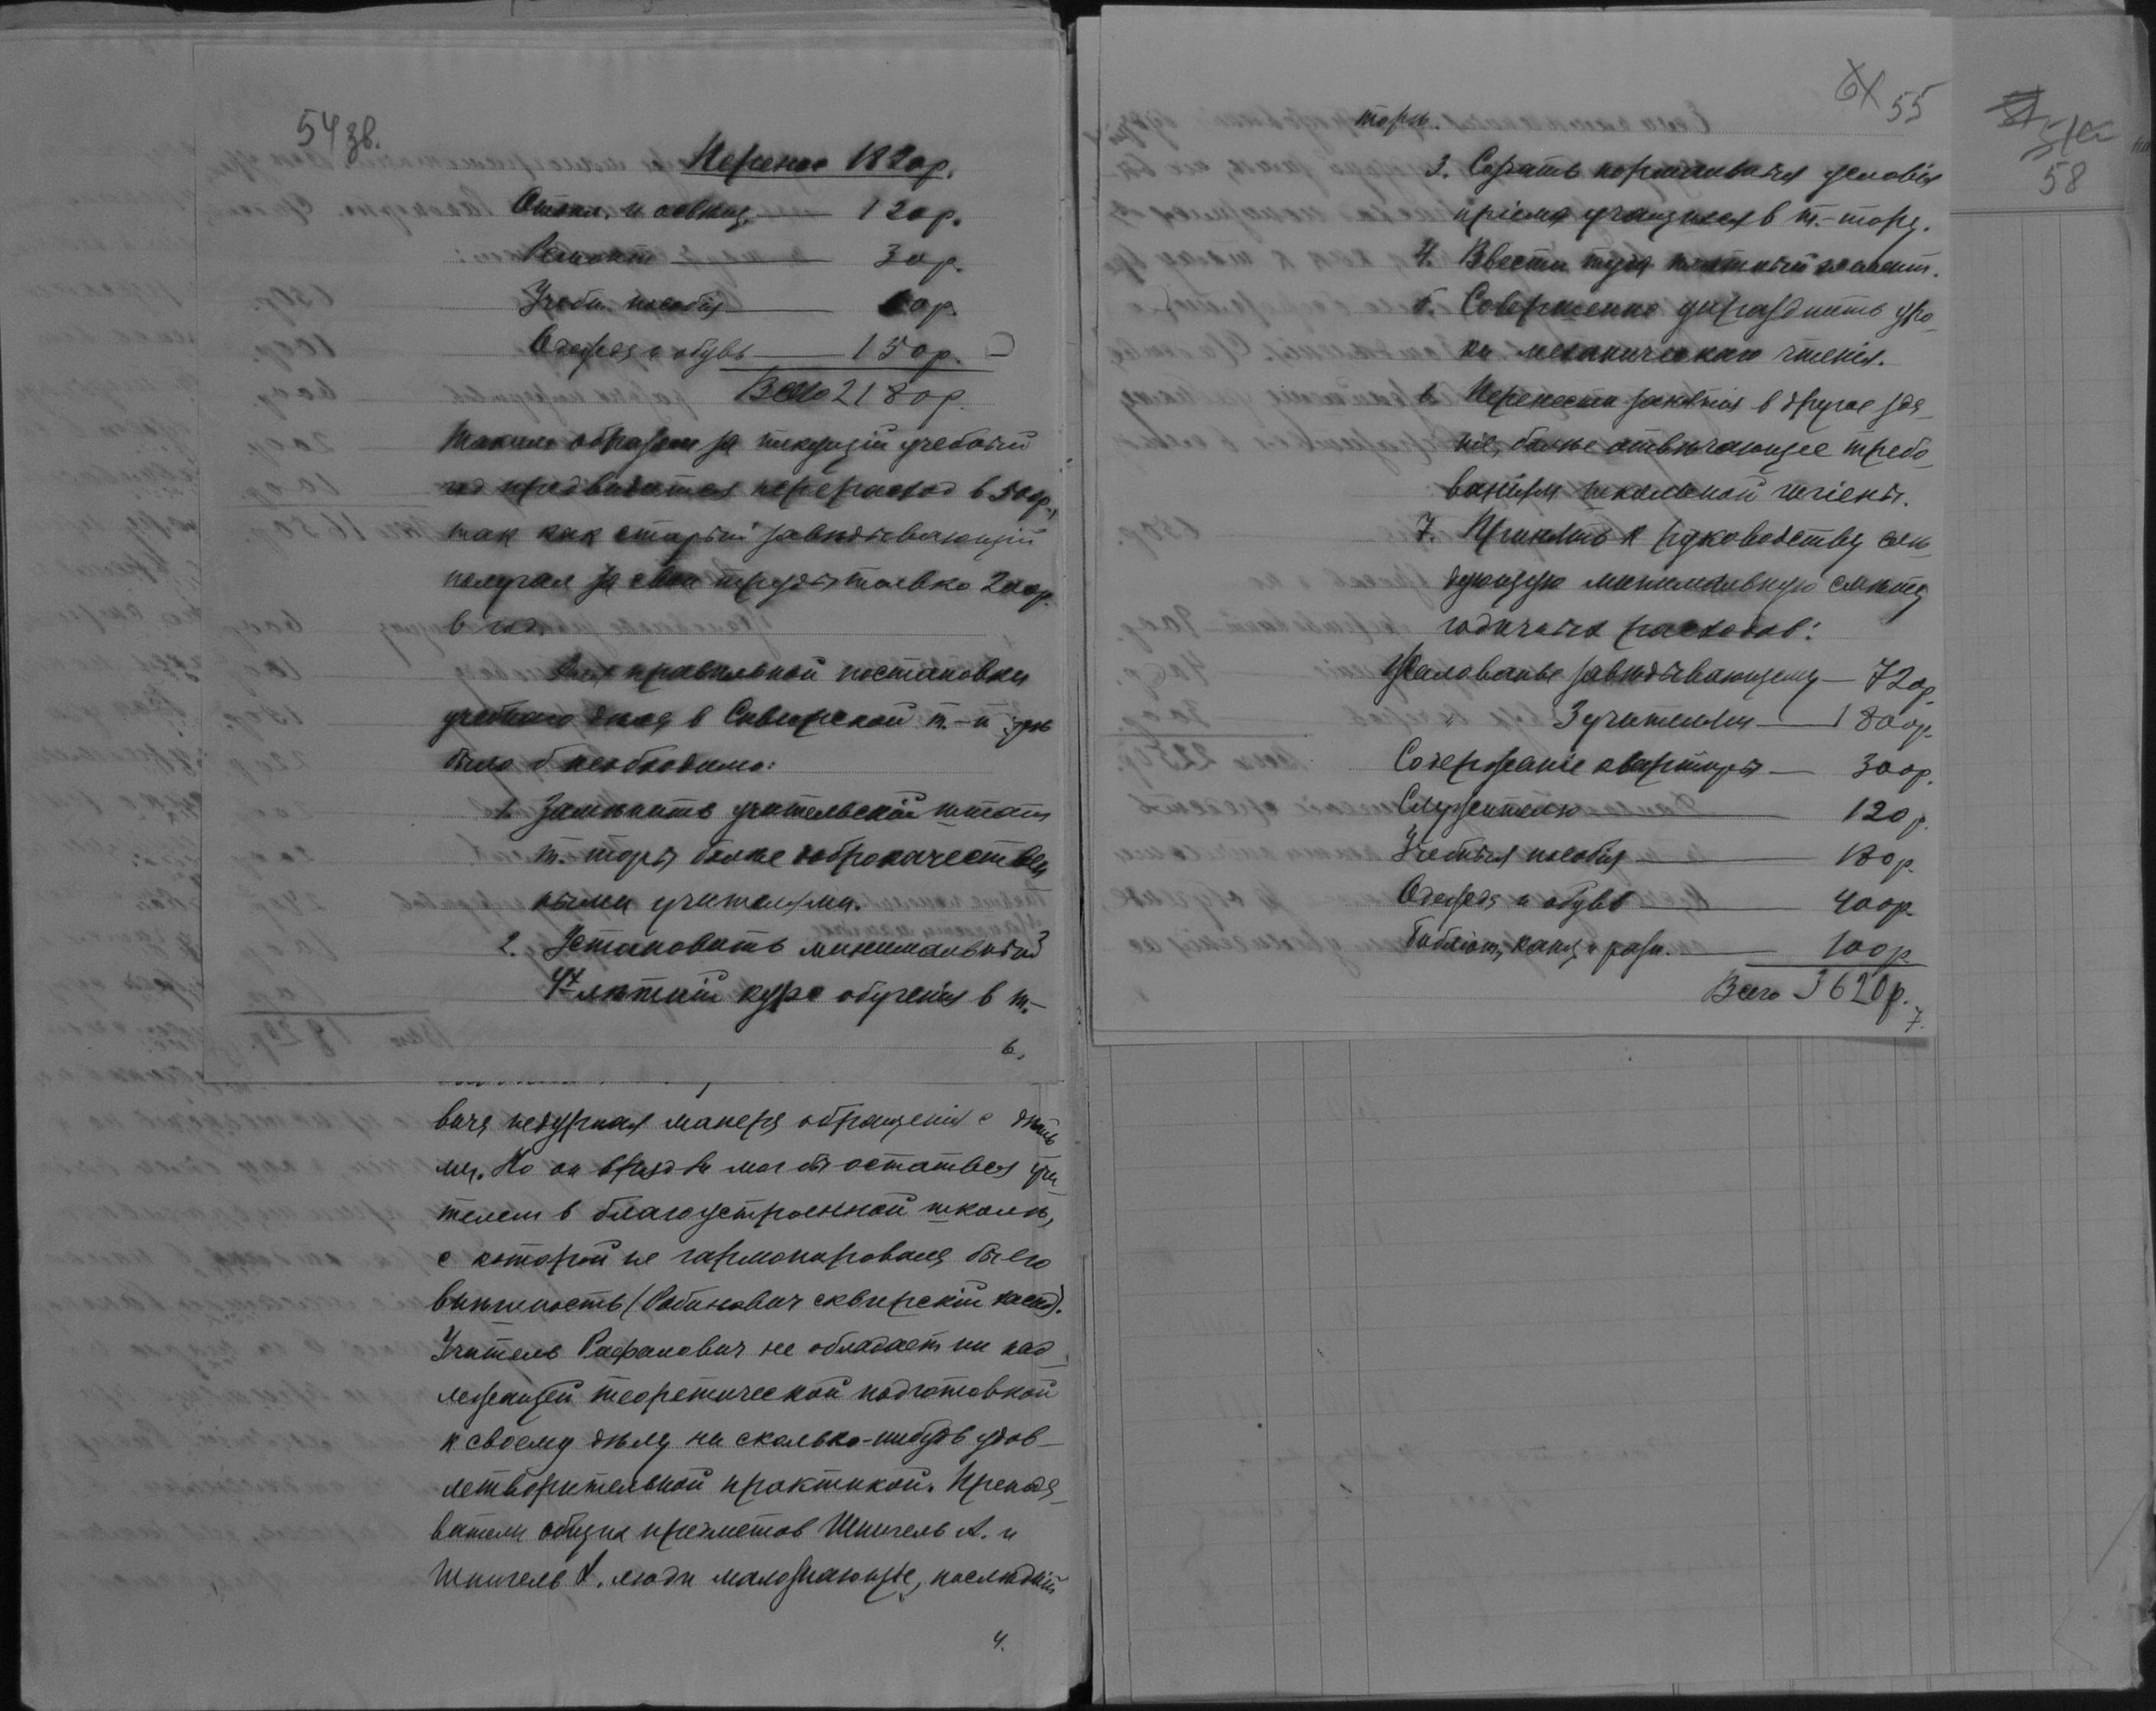 54 зв.
Перенос 1820р.
Отопл. и освѣщ. — 120р.
Ремонт — 30р.
Учебн. пособія — 60р.
Одежда и обувь — 150р.
Всего 2180р.
Таким образом за текущій учебный
год предвидится перерасход в 500р.,
так как старый завѣдывающій
получал за свои труды только 200р.
в год.
Для правильной постановки
учебнаго дѣла в Сквирской т.-т-рѣ
было б необходимо:
1. Замѣнить учительскій штат
т.-торы болѣе доброкачествен
ными учителями.
2. Установить минимальный
4х лѣтній курс обучения в т.-
6.
вича недурная манера обращенія с дѣть
ми. Но он врядъ ли мог бы остаться учи
телем в благоустроенной школѣ,
с которой не гармонировала бы его
внѣшность (Рабинович сквирскій хасид).
Учитель Рафалович не обладает ни над
лежащей теоретической подготовкой
к своему дѣлу ни сколько-нибудь удов-
летворительной практикой. Препода
ватели общих предметов Шпигель А. и
Шпигель І. люди малознающіе, послѣдній
4.
55
торѣ.
3. Создать нормальныя условія
пріема учащихся в т.-тору.
4. Ввести туда платный элемент.
5. Совершенно упразднить уро
ки механическаго чтенія.
6. Перенести занятія в другое зда
ніе, болѣе отвѣчающее требо
ваніям школьной гигіены.
7. Принять к руководству слѣ
дующую минимальную смѣту
годичных расходов:
Жалованье завѣдывающему — 720р.
" 3 учителям — 1800р.
Содержаніе квартиры — 300р.
Служителю — 120р.
Учебныя пособія — 180р.
Одежда и обувь — 400р.
Библіот., канц. и разн. — 100р.
Всего 3620р.
7.
58